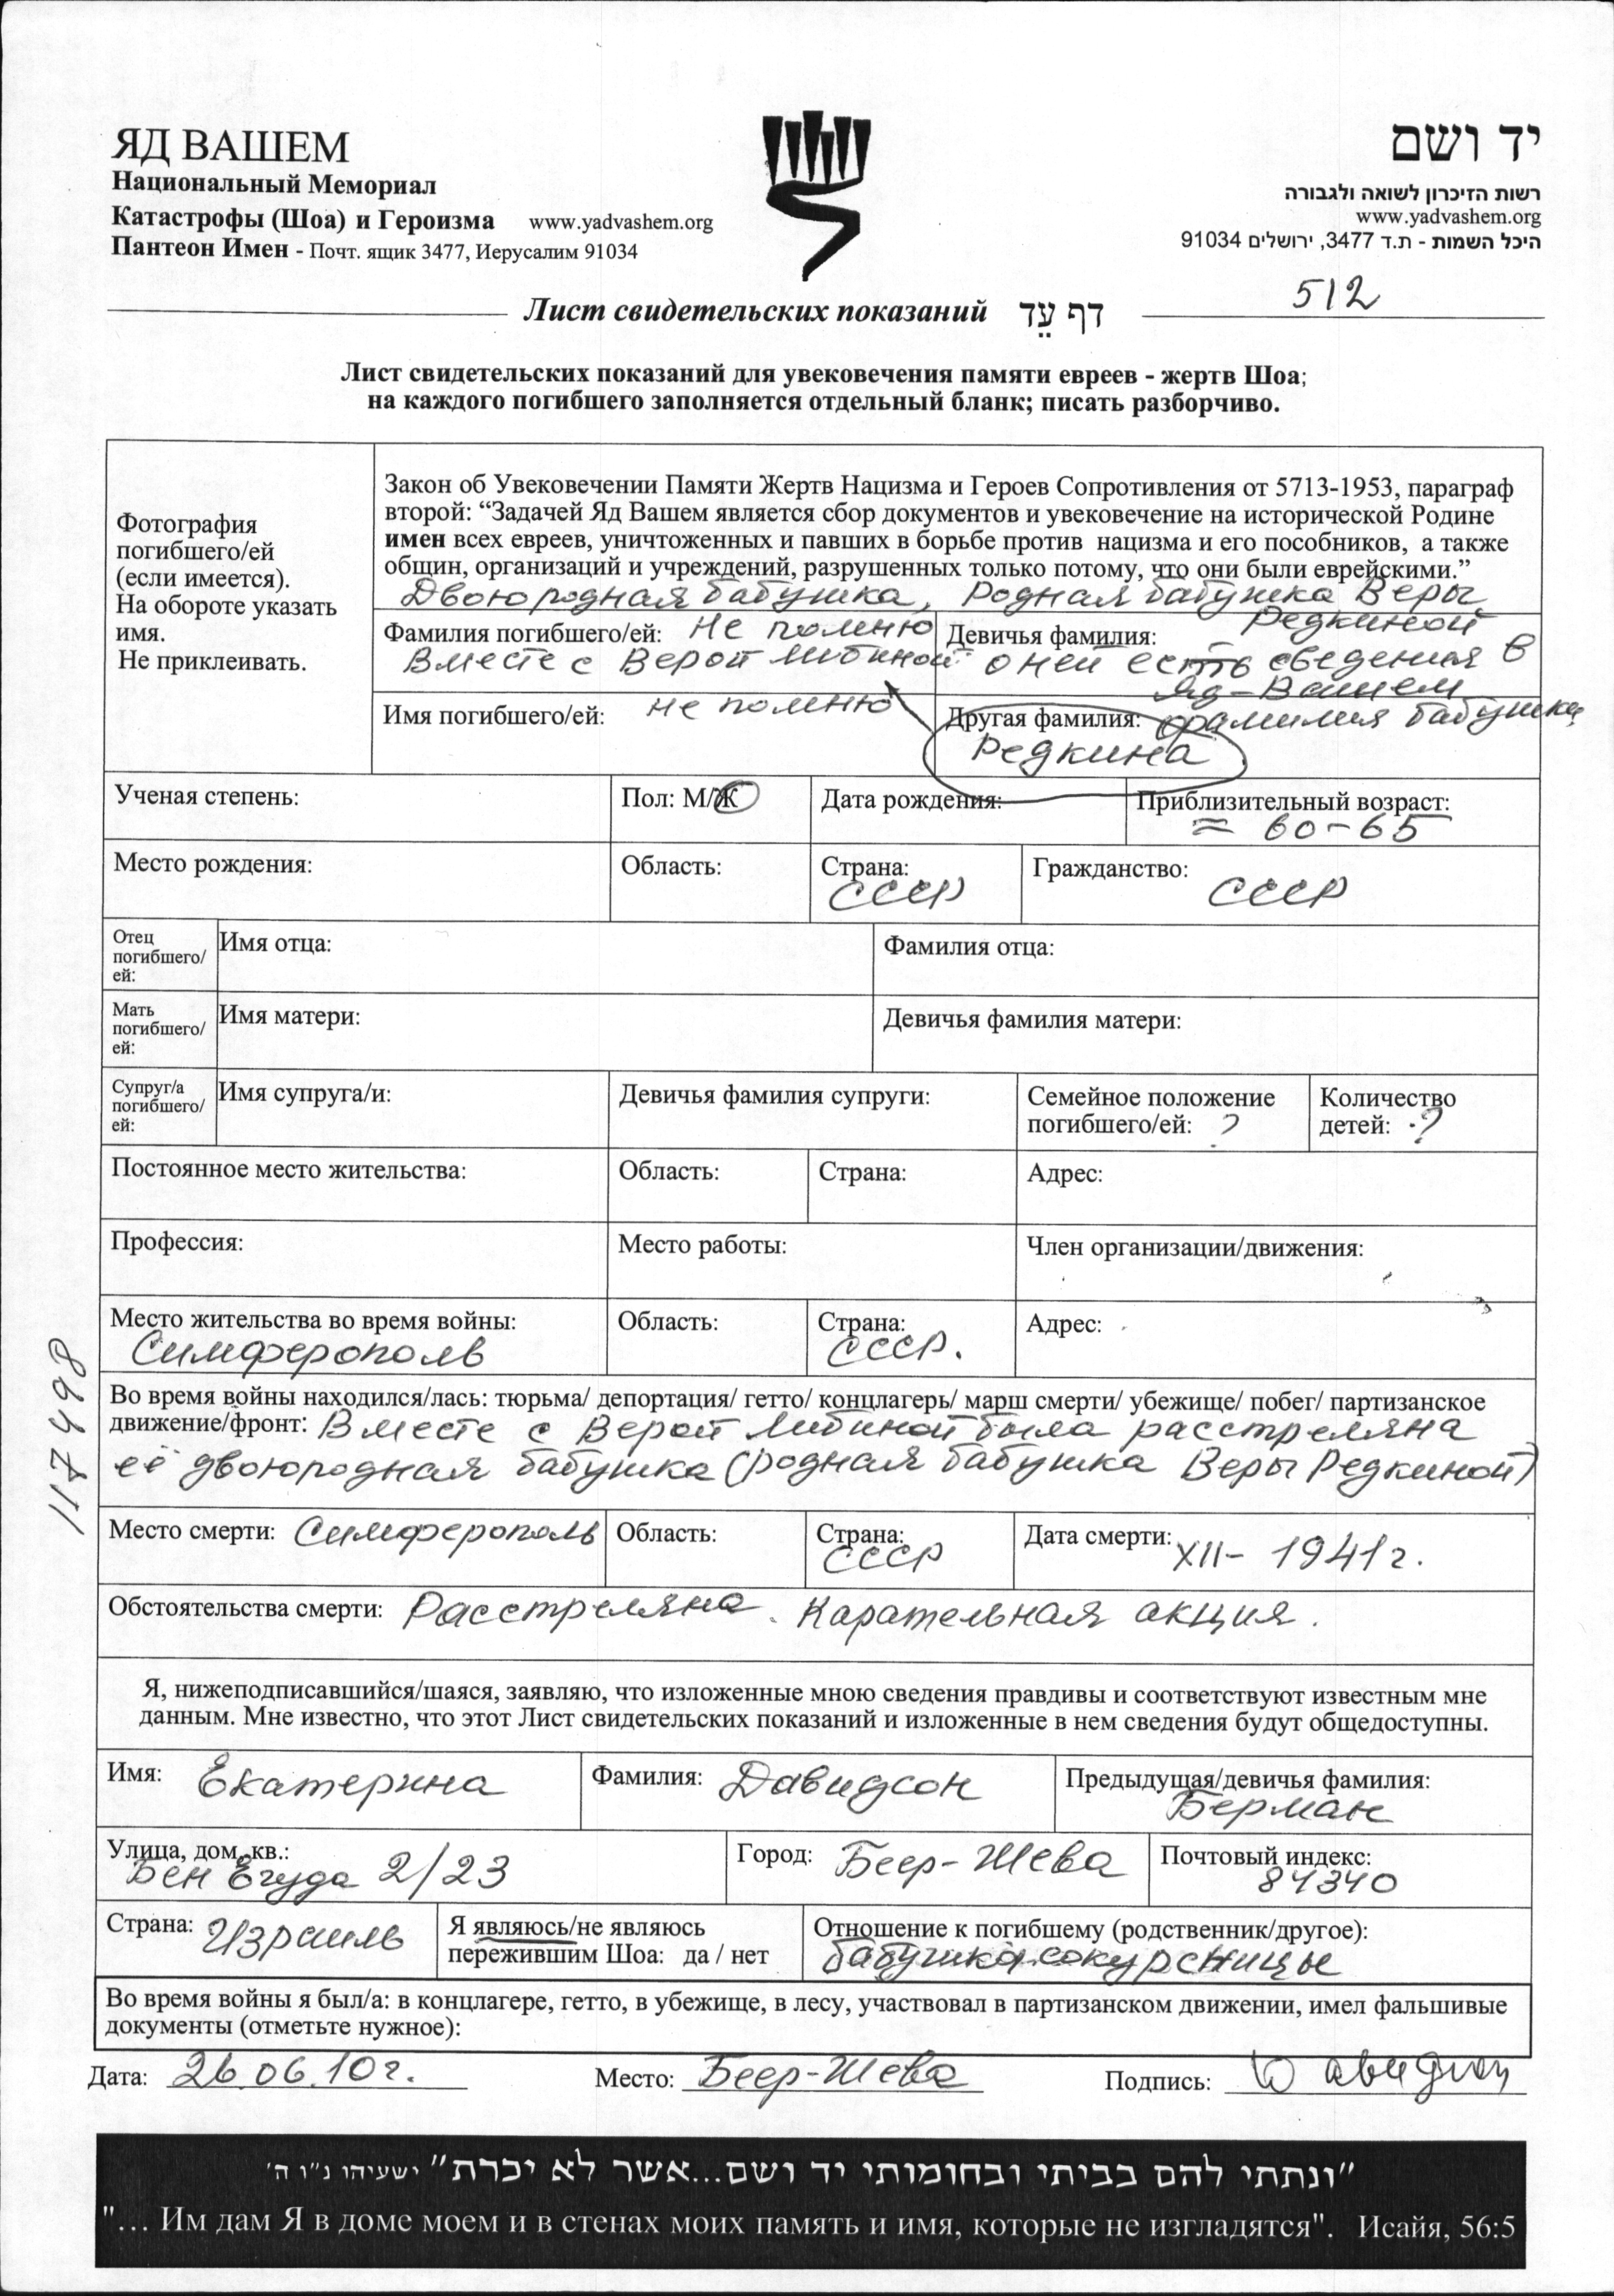 ЯД ВАШЕМ
Национальный Мемориал
Катастрофы (Шоа) и Героизма www.yadvashem.org
Пантеон Имен - Почт. ящик 3477, Иерусалим 91034
יד ושם
רשות הזיכרון לשואה ולגבורה
www.yadvashem.org
היכל השמות - ת.ד 3477, ירושלים 91034
512
Лист свидетельских показаний דף עֵד
Лист свидетельских показаний для увековечения памяти евреев - жертв Шоа;
на каждого погибшего заполняется отдельный бланк; писать разборчиво.
Фотография
погибшего/ей
(если имеется).
На обороте указать
имя.
Не приклеивать.
Закон об Увековечении Памяти Жертв Нацизма и Героев Сопротивления от 5713-1953, параграф
второй: “Задачей Яд Вашем является сбор документов и увековечение на исторической Родине
имен всех евреев, уничтоженных и павших в борьбе против нацизма и его пособников, а также
общин, организаций и учреждений, разрушенных только потому, что они были еврейскими.”
Двоюродная бабушка, Родная бабушка Веры
Редкиной
Фамилия погибшего/ей: Не помню Девичья фамилия: -
Вместе с Верой Либиной о ней есть сведения в
Яд-Вашем
Имя погибшего/ей: не помню Другая фамилия: фамилия бабушки
Редкина
Ученая степень: Пол: М/Ж Дата рождения: Приблизительный возраст:
≈ 60-65
Место рождения: Область: Страна: Гражданство:
СССР СССР
Отец
погибшего/
ей:
Имя отца: Фамилия отца:
Мать
погибшего/
ей:
Имя матери: Девичья фамилия матери:
Супруг/а
погибшего/
ей:
Имя супруга/и: Девичья фамилия супруги: Семейное положение
погибшего/ей: ? Количество
детей: ?
Постоянное место жительства: Область: Страна: Адрес:
Профессия: Место работы: Член организации/движения:
Место жительства во время войны: Область: Страна: Адрес:
Симферополь СССР.
117498
Во время войны находился/лась: тюрьма/ депортация/ гетто/ концлагерь/ марш смерти/ убежище/ побег/ партизанское
движение/фронт: Вместе с Верой Либиной была расстреляна
её двоюродная бабушка (родная бабушка Веры Редкиной)
Место смерти: Симферополь Область: Страна: СССР Дата смерти: XII- 1941г.
Обстоятельства смерти: Расстреляна. Карательная акция.
Я, нижеподписавшийся/шаяся, заявляю, что изложенные мною сведения правдивы и соответствуют известным мне
данным. Мне известно, что этот Лист свидетельских показаний и изложенные в нем сведения будут общедоступны.
Имя: Екатерина Фамилия: Давидсон Предыдущая/девичья фамилия:
Берман
Улица, дом, кв.: Город: Беер-Шева Почтовый индекс:
Бен Егуда 2/23 84340
Страна: Израиль Я являюсь/не являюсь
пережившим Шоа: да / нет
Отношение к погибшему (родственник/другое):
бабушка сокурсницы
Во время войны я был/а: в концлагере, гетто, в убежище, в лесу, участвовал в партизанском движении, имел фальшивые
документы (отметьте нужное):
Дата: 26.06.10г. Место: Беер-Шева Подпись: Давидсон
"ונתתי להם בביתי ובחומותי יד ושם...אשר לא יכרת" ישעיהו נ"ו ה'
"… Им дам Я в доме моем и в стенах моих память и имя, которые не изгладятся". Исайя, 56:5